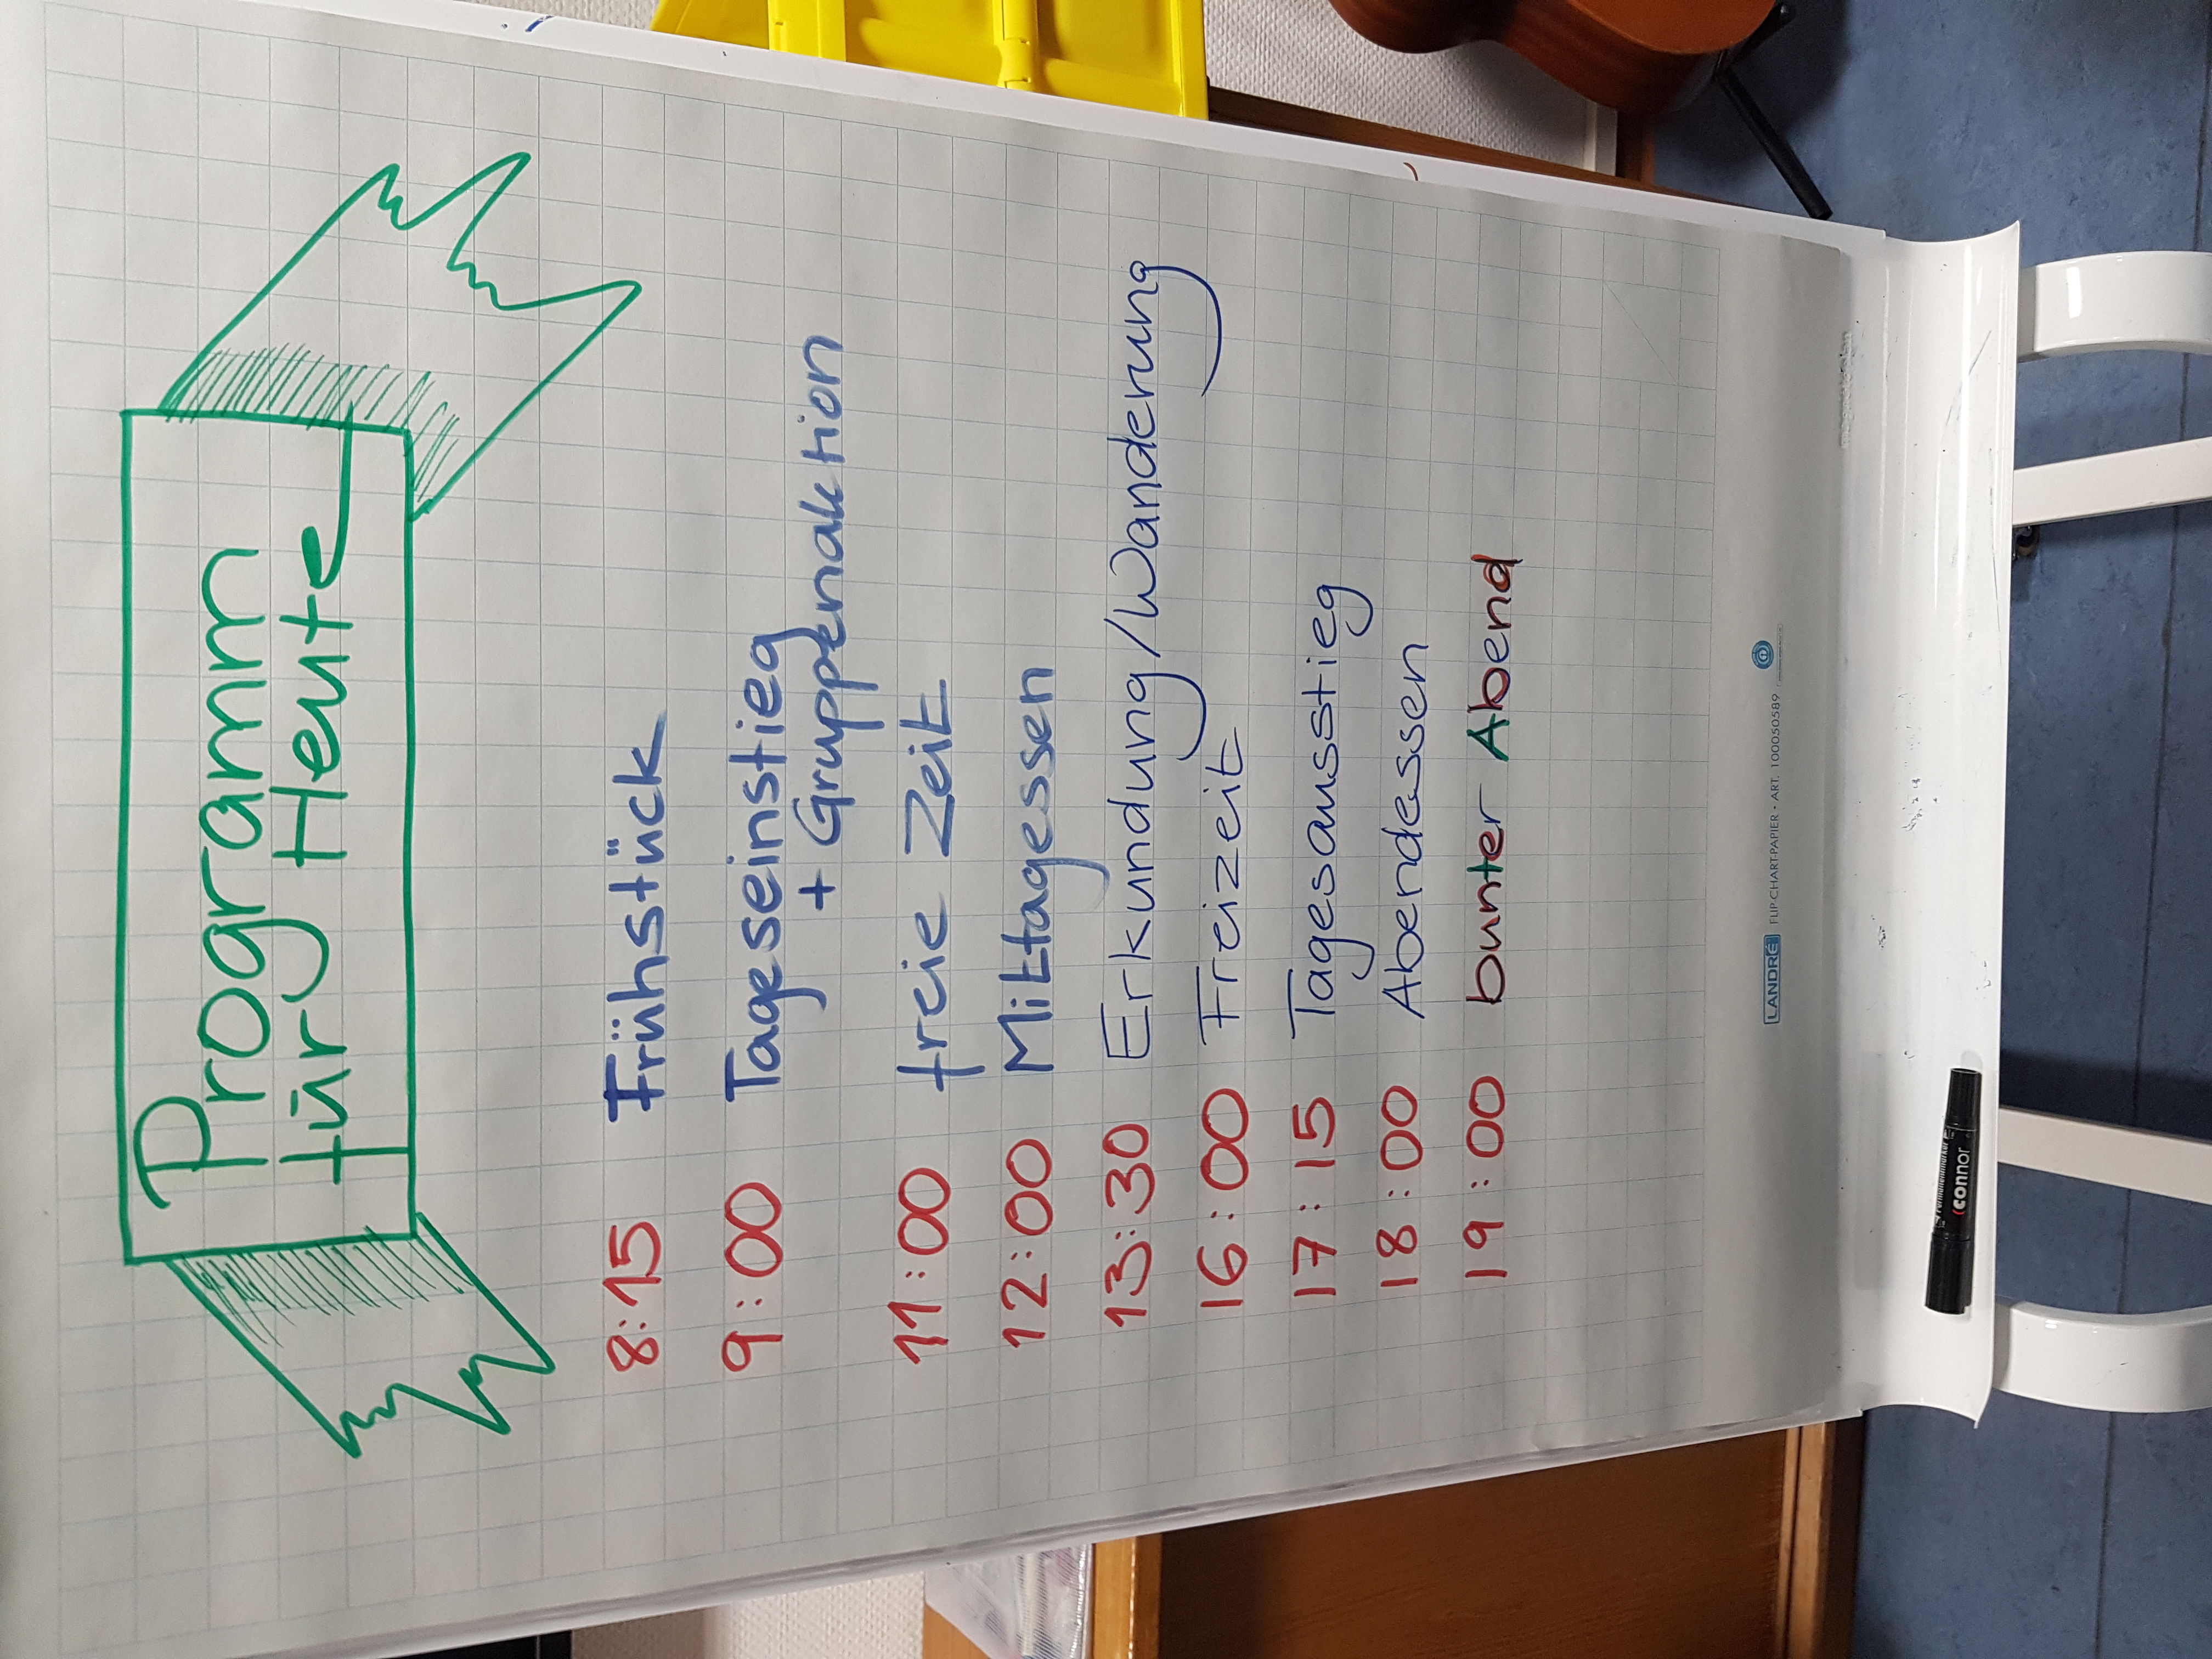 Programm
für Heute
8:15 Frühstück
9:00 Tageseinstieg
+ Gruppenaktion
11:00 freie Zeit
12:00 Mittagessen
13:30 Erkundung/Wanderung
16:00 Freizeit
17:15 Tagesausstieg
18:00 Abendessen
19:00 bunter Abend
LANDRÉ FLIP-CHART-PAPIER • ART. 100050589
connor